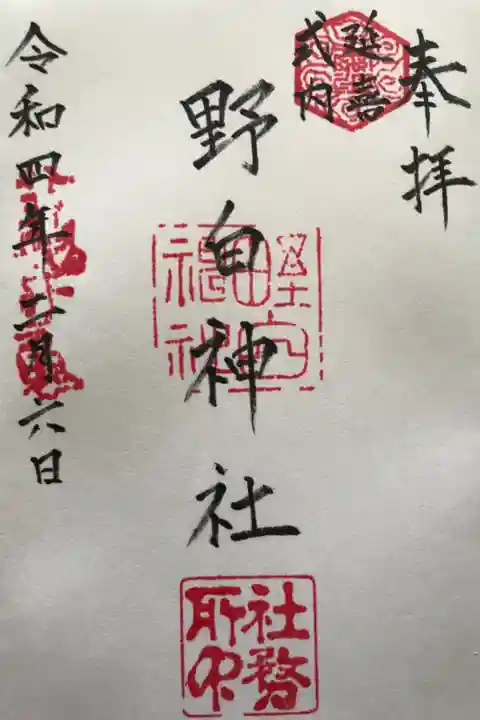 奉拝
延喜
式内
野白神社
令和四年十一月六日
社務
所印